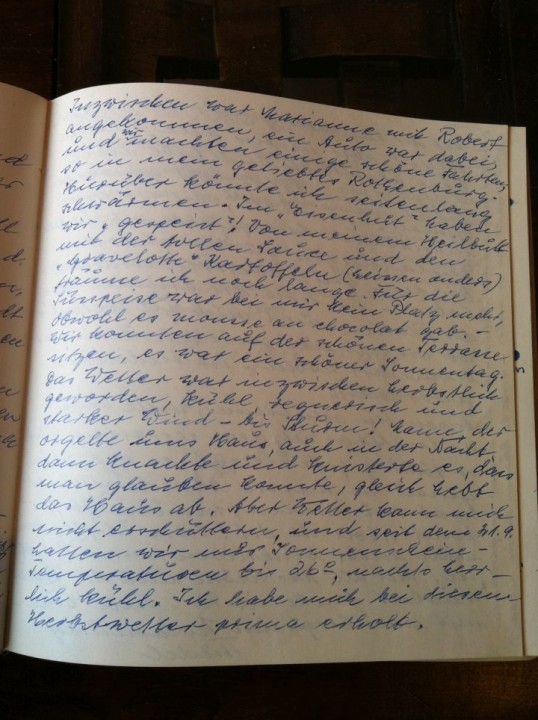 Inzwischen war Marianne mit Robert
angekommen, ein Auto war dabei,
und wir machten einige schöne Fahrten,
so in mein geliebtes Rothenburg.
Hierüber könnte ich seitenlang
schwärmen. Im "Eisenhut" haben
wir "gespeist"! Von meinem Heilbutt
mit der tollen Sauce und den
"Gravelott" Kartoffeln (heissen anders)
träume ich noch lange. Für die
Süsspeise war bei mir kein Platz mehr,
obwohl es mousse au chocolat gab. -
Wir konnten auf der schönen Terrasse
sitzen, es war ein schöner Sonnentag.
Das Wetter war inzwischen herbstlich
geworden, kühl, regnerisch und
starker Wind - bis Sturm! kam, der
orgelte ums Haus, auch in der Nacht
dann knackte und knisterte es, dass
man glauben konnte, gleich hebt
das Haus ab. Aber Wetter kann mich
nicht erschüttern, und seit dem 21.9.
hatten wir nur Sonnenschein -
Temperaturen bis 26°, nachts herr-
lich kühl. Ich habe mich bei diesem
Herbstwetter prima erholt.